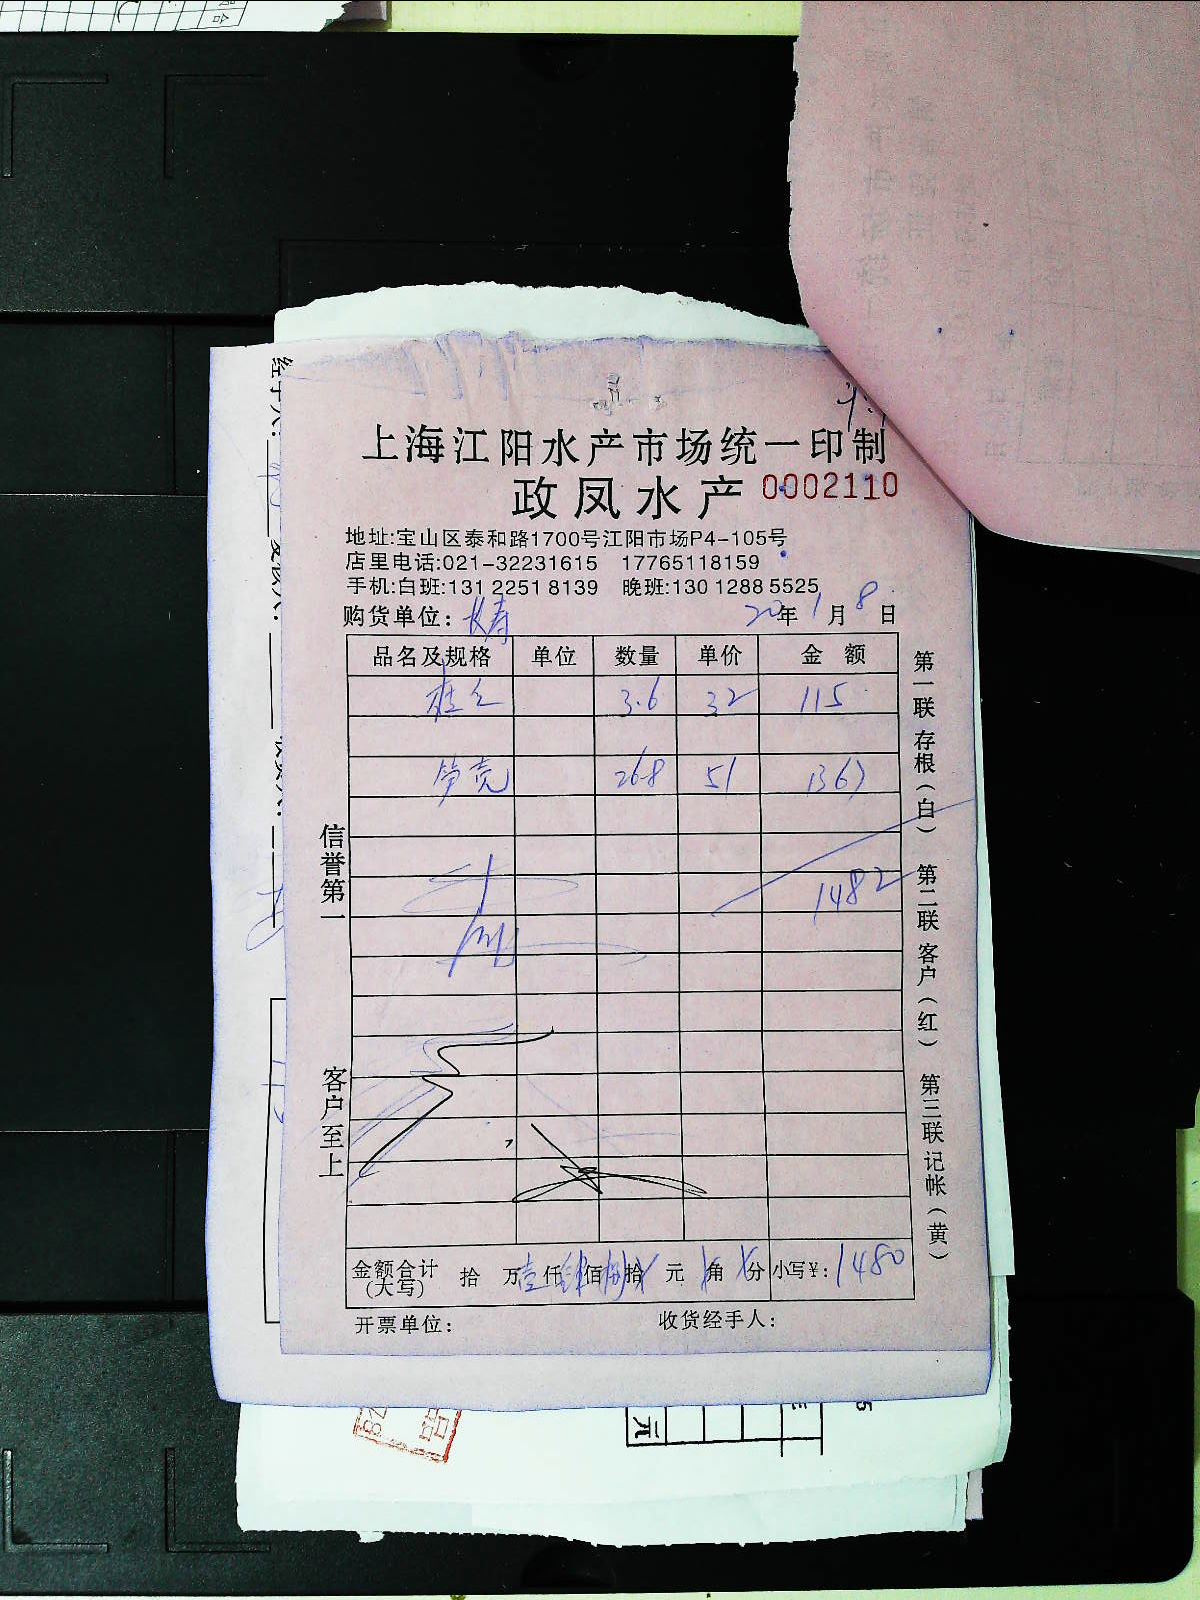 上海江阳水产市场统一印制
政凤水产 0002110
地址:宝山区泰和路1700号江阳市场P4-105号
店里电话:021-32231615 17765118159
手机:白班:131 2251 8139 晚班:130 1288 5525
购货单位: 长寿 20年1月8日
品名及规格 单位 数量 单价 金额
桂仑 3.6 32 115
笋壳 26.8 51 1367
1482
金额合计(大写) 拾 万壹仟肆佰捌拾 元 角 分 小写¥: 1480
开票单位: 收货经手人:
信誉第一 客户至上
第一联 存根(白) 第二联 客户(红) 第三联 记帐(黄)
经手人: